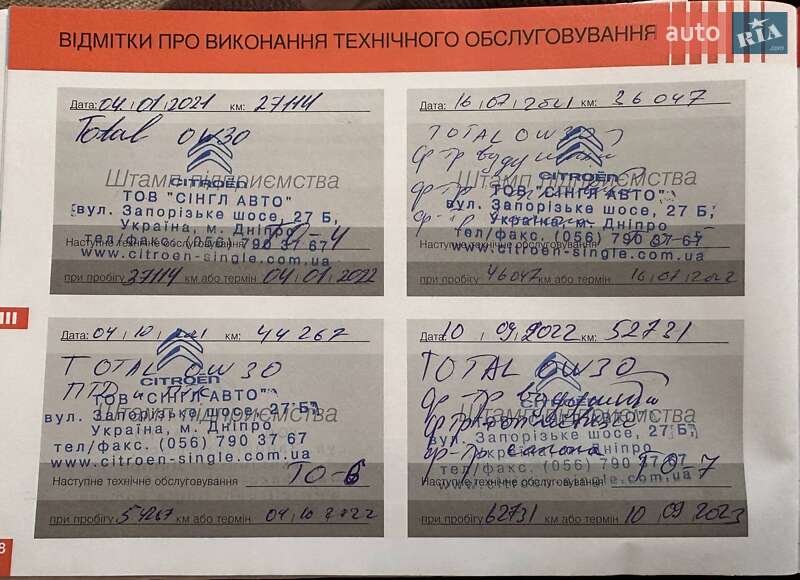 ВІДМІТКИ ПРО ВИКОНАННЯ ТЕХНІЧНОГО ОБСЛУГОВУВАННЯ
auto RIA .com
Дата: 04 01 2021 км: 27114
Total 0W30
Штамп підприємства
CITROËN
ТОВ "СІНГЛ АВТО"
вул. Запорізьке шосе, 27 Б,
Україна, м. Дніпро
Наступне технічне обслуговування ТО-4
тел/факс. (056) 790 37 67
www.citroen-single.com.ua
при пробігу 37114 км або термін 04 01 2022
Дата: 16 07 2021 км: 36047
TOTAL 0W30
ф-тр
Штамп підприємства
CITROËN
ТОВ "СІНГЛ АВТО"
вул. Запорізьке шосе, 27 Б,
Україна, м. Дніпро
Наступне технічне обслуговування
тел/факс. (056) 790 37 67
www.citroen-single.com.ua
при пробігу 46047 км або термін 16 07 2022
III
Дата: 04 10 2021 км: 44267
TOTAL 0W30
CITROËN
ТОВ "СІНГЛ АВТО"
Штамп підприємства
вул. Запорізьке шосе, 27 Б,
Україна, м. Дніпро
тел/факс. (056) 790 37 67
www.citroen-single.com.ua
Наступне технічне обслуговування ТО-6
при пробігу 54267 км або термін 04 10 2022
Дата: 10 09 2022 км: 52731
TOTAL 0W30
ф-тр
ф-тр салона
вул. Запорізьке шосе, 27 Б,
Україна, м. Дніпро
тел/факс. (056) 790 37 67
www.citroen-single.com.ua
Наступне технічне обслуговування ТО-7
при пробігу 62731 км або термін 10 09 2023
8